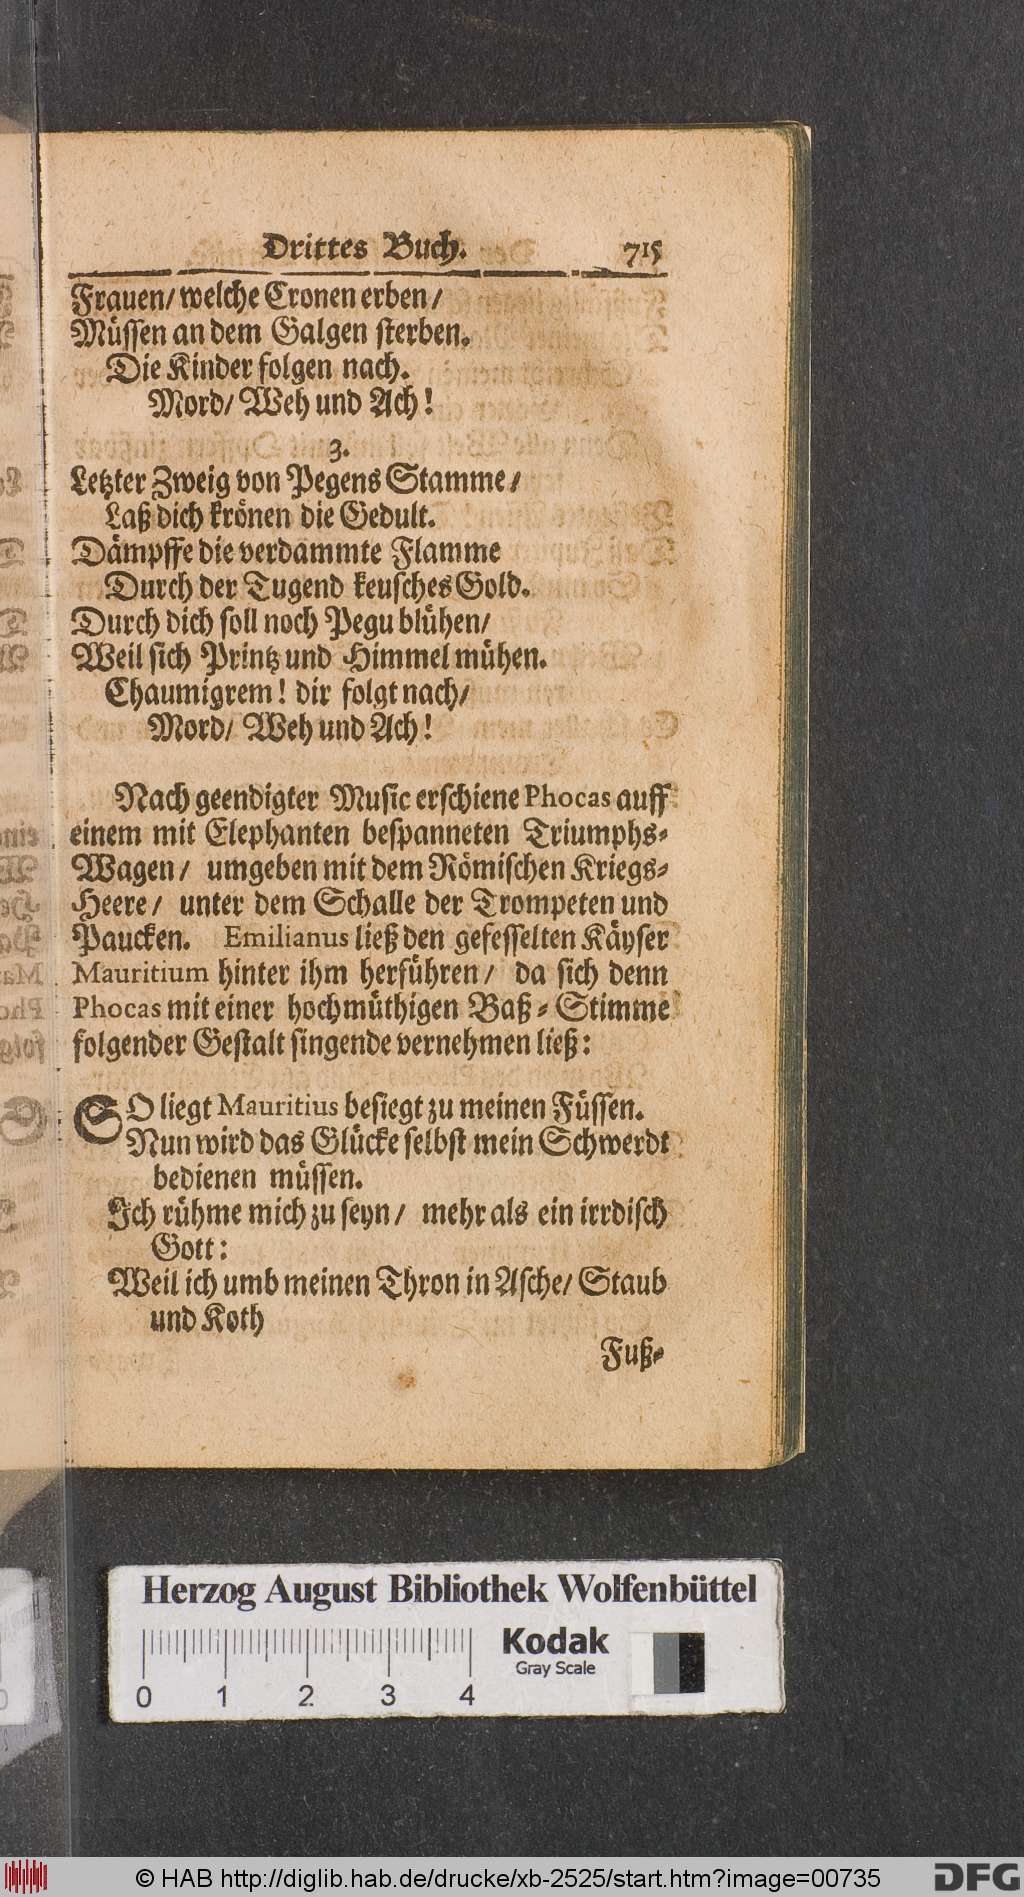 Drittes Buch. 715
Frauen/ welche Cronen erben/
Müssen an dem Galgen sterben.
Die Kinder folgen nach.
Mord/ Weh und Ach!
3.
Letzter Zweig von Pegens Stamme/
Laß dich krönen die Gedult.
Dämpffe die verdammte Flamme
Durch der Tugend keusches Gold.
Durch dich soll noch Pegu blühen/
Weil sich Printz und Himmel mühen.
Chaumigrem! dir folgt nach/
Mord/ Weh und Ach!
Nach geendigter Music erschiene Phocas auff
einem mit Elephanten bespanneten Triumphs-
Wagen/ umgeben mit dem Römischen Kriegs-
Heere/ unter dem Schalle der Trompeten und
Paucken. Emilianus ließ den gefesselten Käyser
Mauritium hinter ihm herführen/ da sich denn
Phocas mit einer hochmüthigen Baß-Stimme
folgender Gestalt singende vernehmen ließ:
SO liegt Mauritius besiegt zu meinen Füssen.
Nun wird das Glücke selbst mein Schwerdt
bedienen müssen.
Ich rühme mich zu seyn/ mehr als ein irrdisch
Gott:
Weil ich umb meinen Thron in Asche/ Staub
und Koth
Fuß-
Herzog August Bibliothek Wolfenbüttel
Kodak
Gray Scale
0 1 2 3 4
© HAB http://diglib.hab.de/drucke/xb-2525/start.htm?image=00735
DFG